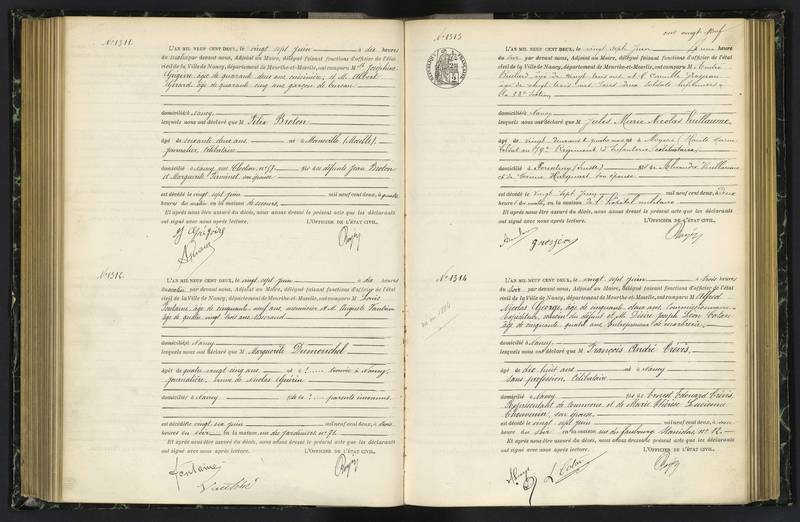 N° 1311
L'AN MIL NEUF CENT DEUX, le vingt sept juin à dix heures
du matin par devant nous, Adjoint au Maire, délégué faisant fonctions d'officier de l'état
civil de la Ville de Nancy, département de Meurthe-et-Moselle, ont comparu M Joséphine
âgée de quarante deux ans cuisinière, et M. Albert
Girard, âgé de quarante cinq ans garçon de bureau
domiciliés à Nancy
lesquels nous ont déclaré que M Félix Breton
âgé de soixante deux ans né à Moineville (Moselle)
journalier, célibataire
domicilié à Nancy, rue n° 57 fils de défunts Jean Breton
et Marguerite son épouse
est décédé le vingt sept juin mil neuf cent deux, à quatre
heures du matin en la maison de secours.
Et après nous être assuré du décès, nous avons dressé le présent acte que les déclarants
ont signé avec nous après lecture. L'OFFICIER DE L'ÉTAT CIVIL.
N° 1312
L'AN MIL NEUF CENT DEUX, le vingt sept juin à dix heures
du matin, par devant nous, Adjoint au Maire, délégué faisant fonctions d'officier de l'état
civil de la Ville de Nancy, département de Meurthe-et-Moselle, ont comparu M Louis
Fontaine, âgé de cinquante neuf ans, menuisier et M. Auguste
âgé de quatre vingt trois ans
domiciliés à Nancy
lesquels nous ont déclaré que M Marguerite Dumenchel
âgée de quatre vingt cinq ans née à ? à Nancy
journalière, veuve de Nicolas Guérin
domicilié à Nancy fille de ? parents inconnus.
est décédée vingt six juin mil neuf cent deux, à trois
heures du soir en la maison rue des jardiniers n°
Et après nous être assuré du décès, nous avons dressé le présent acte que les déclarants
ont signé avec nous après lecture. L'OFFICIER DE L'ÉTAT CIVIL.
Fontaine
cent vingt neuf
N° 1313
RÉPUBLIQUE FRANÇAISE
L'AN MIL NEUF CENT DEUX, le vingt sept juin à une heure
du soir, par devant nous, Adjoint au Maire, délégué faisant fonctions d'officier de l'état
civil de la Ville de Nancy, département de Meurthe-et-Moselle, ont comparu M
âgé de vingt trois ans et M Camille
âgé de vingt trois ans tous deux soldats infirmiers
domiciliés à Nancy
lesquels nous ont déclaré que M Jules Marie Nicolas Vuillaume
âgé de vingt deux ans né à (Haute Marne
soldat au Régiment d'Infanterie, célibataire
domicilié à Porrentruy (Suisse) fils de Alexandre Vuillaume
et de son épouse
est décédé le vingt sept juin mil neuf cent deux, à deux
heures du matin, en la maison de l'hôpital militaire
Et après nous être assuré du décès, nous avons dressé le présent acte que les déclarants
ont signé avec nous après lecture. L'OFFICIER DE L'ÉTAT CIVIL.
N° 1314
L'AN MIL NEUF CENT DEUX, le vingt sept juin à trois heures
du soir, par devant nous, Adjoint au Maire, délégué faisant fonctions d'officier de l'état
civil de la Ville de Nancy, département de Meurthe-et-Moselle, ont comparu M Alfred
Nicolas George, âgé de cinquante deux ans, Commissionnaire
expéditeur, voisin du défunt et M. Désiré Joseph Léon
âgé de cinquante quatre ans entrepreneur de marbrerie
domiciliés à Nancy
lesquels nous ont déclaré que M François André Crévis
âgé de dix huit ans né à Nancy
sans profession, célibataire
domicilié à Nancy fils de Ernest Edouard Crévis,
Représentant de commerce et de Marie Thérèse Lucienne
son épouse
est décédé le vingt sept juin mil neuf cent deux, à
heures du en la maison rue du faubourg Stanislas, n° 12
Et après nous être assuré du décès, nous avons dressé le présent acte que les déclarants
ont signé avec nous après lecture. L'OFFICIER DE L'ÉTAT CIVIL.